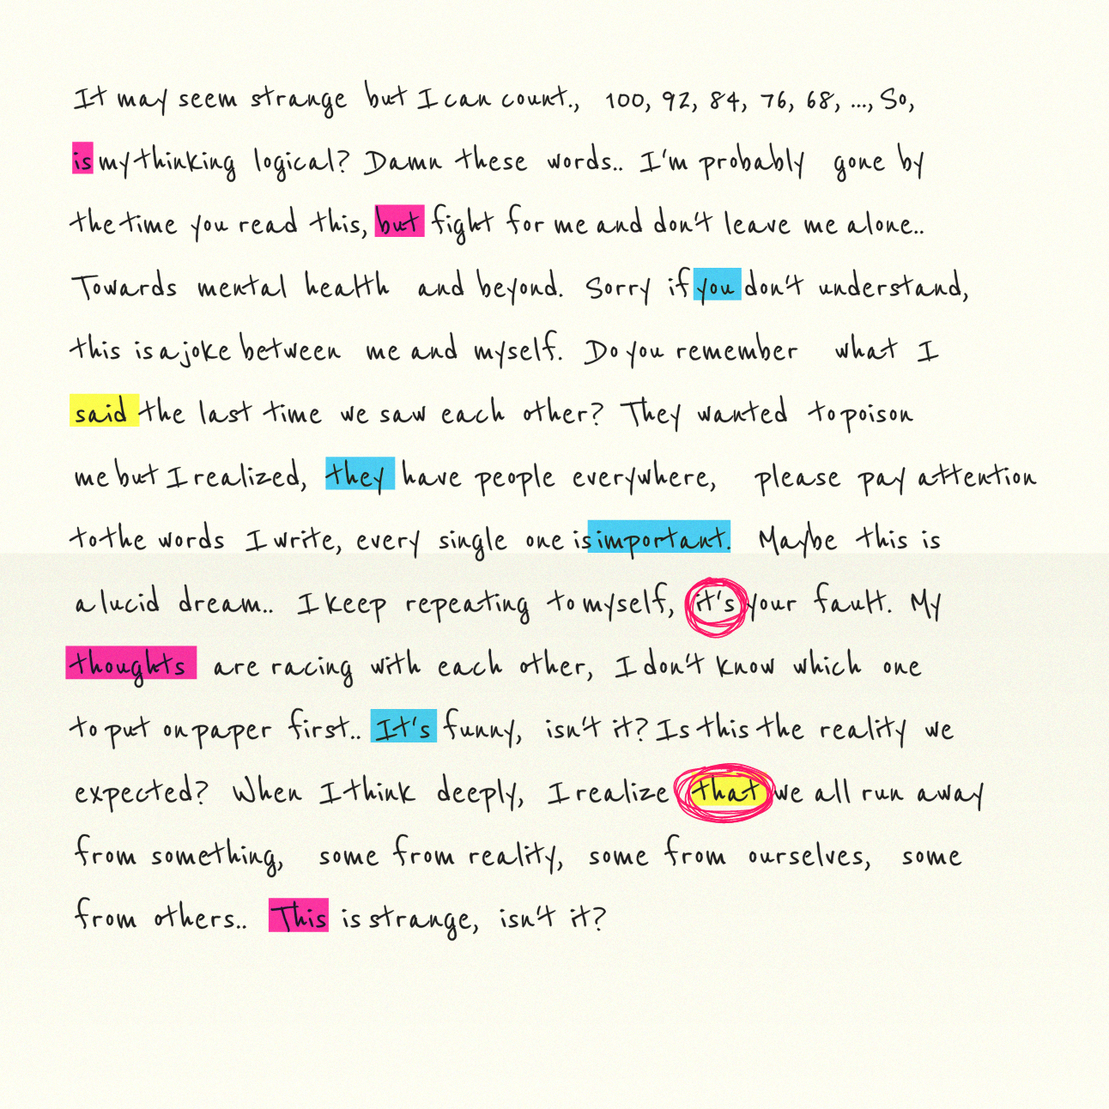 It may seem strange but I can count., 100, 92, 84, 76, 68, ..., So,
is my thinking logical? Damn these words.. I'm probably gone by
the time you read this, but fight for me and don't leave me alone..
Towards mental health and beyond. Sorry if you don't understand,
this is a joke between me and myself. Do you remember what I
said the last time we saw each other? They wanted to poison
me but I realized, they have people everywhere, please pay attention
to the words I write, every single one is important. Maybe this is
a lucid dream.. I keep repeating to myself, it's your fault. My
thoughts are racing with each other, I don't know which one
to put on paper first.. It's funny, isn't it? Is this the reality we
expected? When I think deeply, I realize that we all run away
from something, some from reality, some from ourselves, some
from others.. This is strange, isn't it?